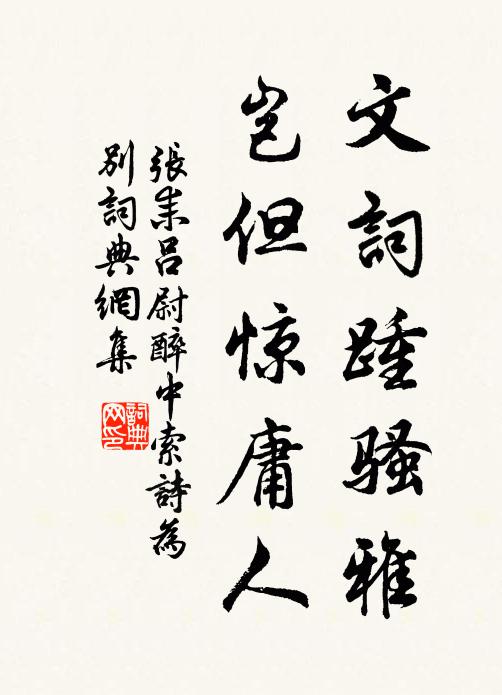 文詞踵骚雅
岂但惊庸人
張耒呂尉醉中索詩為
別詞典網集
詞典
网印